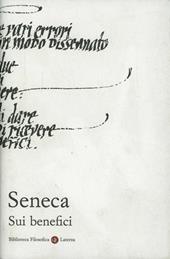 e vari errori
in modo dissennato
due
di
vere:
di dare
di ricevere
nefici.
Seneca
Sui benefici
Biblioteca Filosofica Laterza